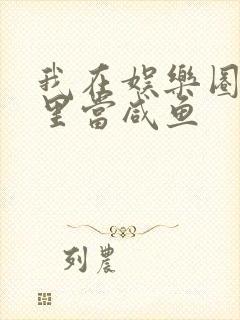 我在娱樂圈
里當咸鱼
列農